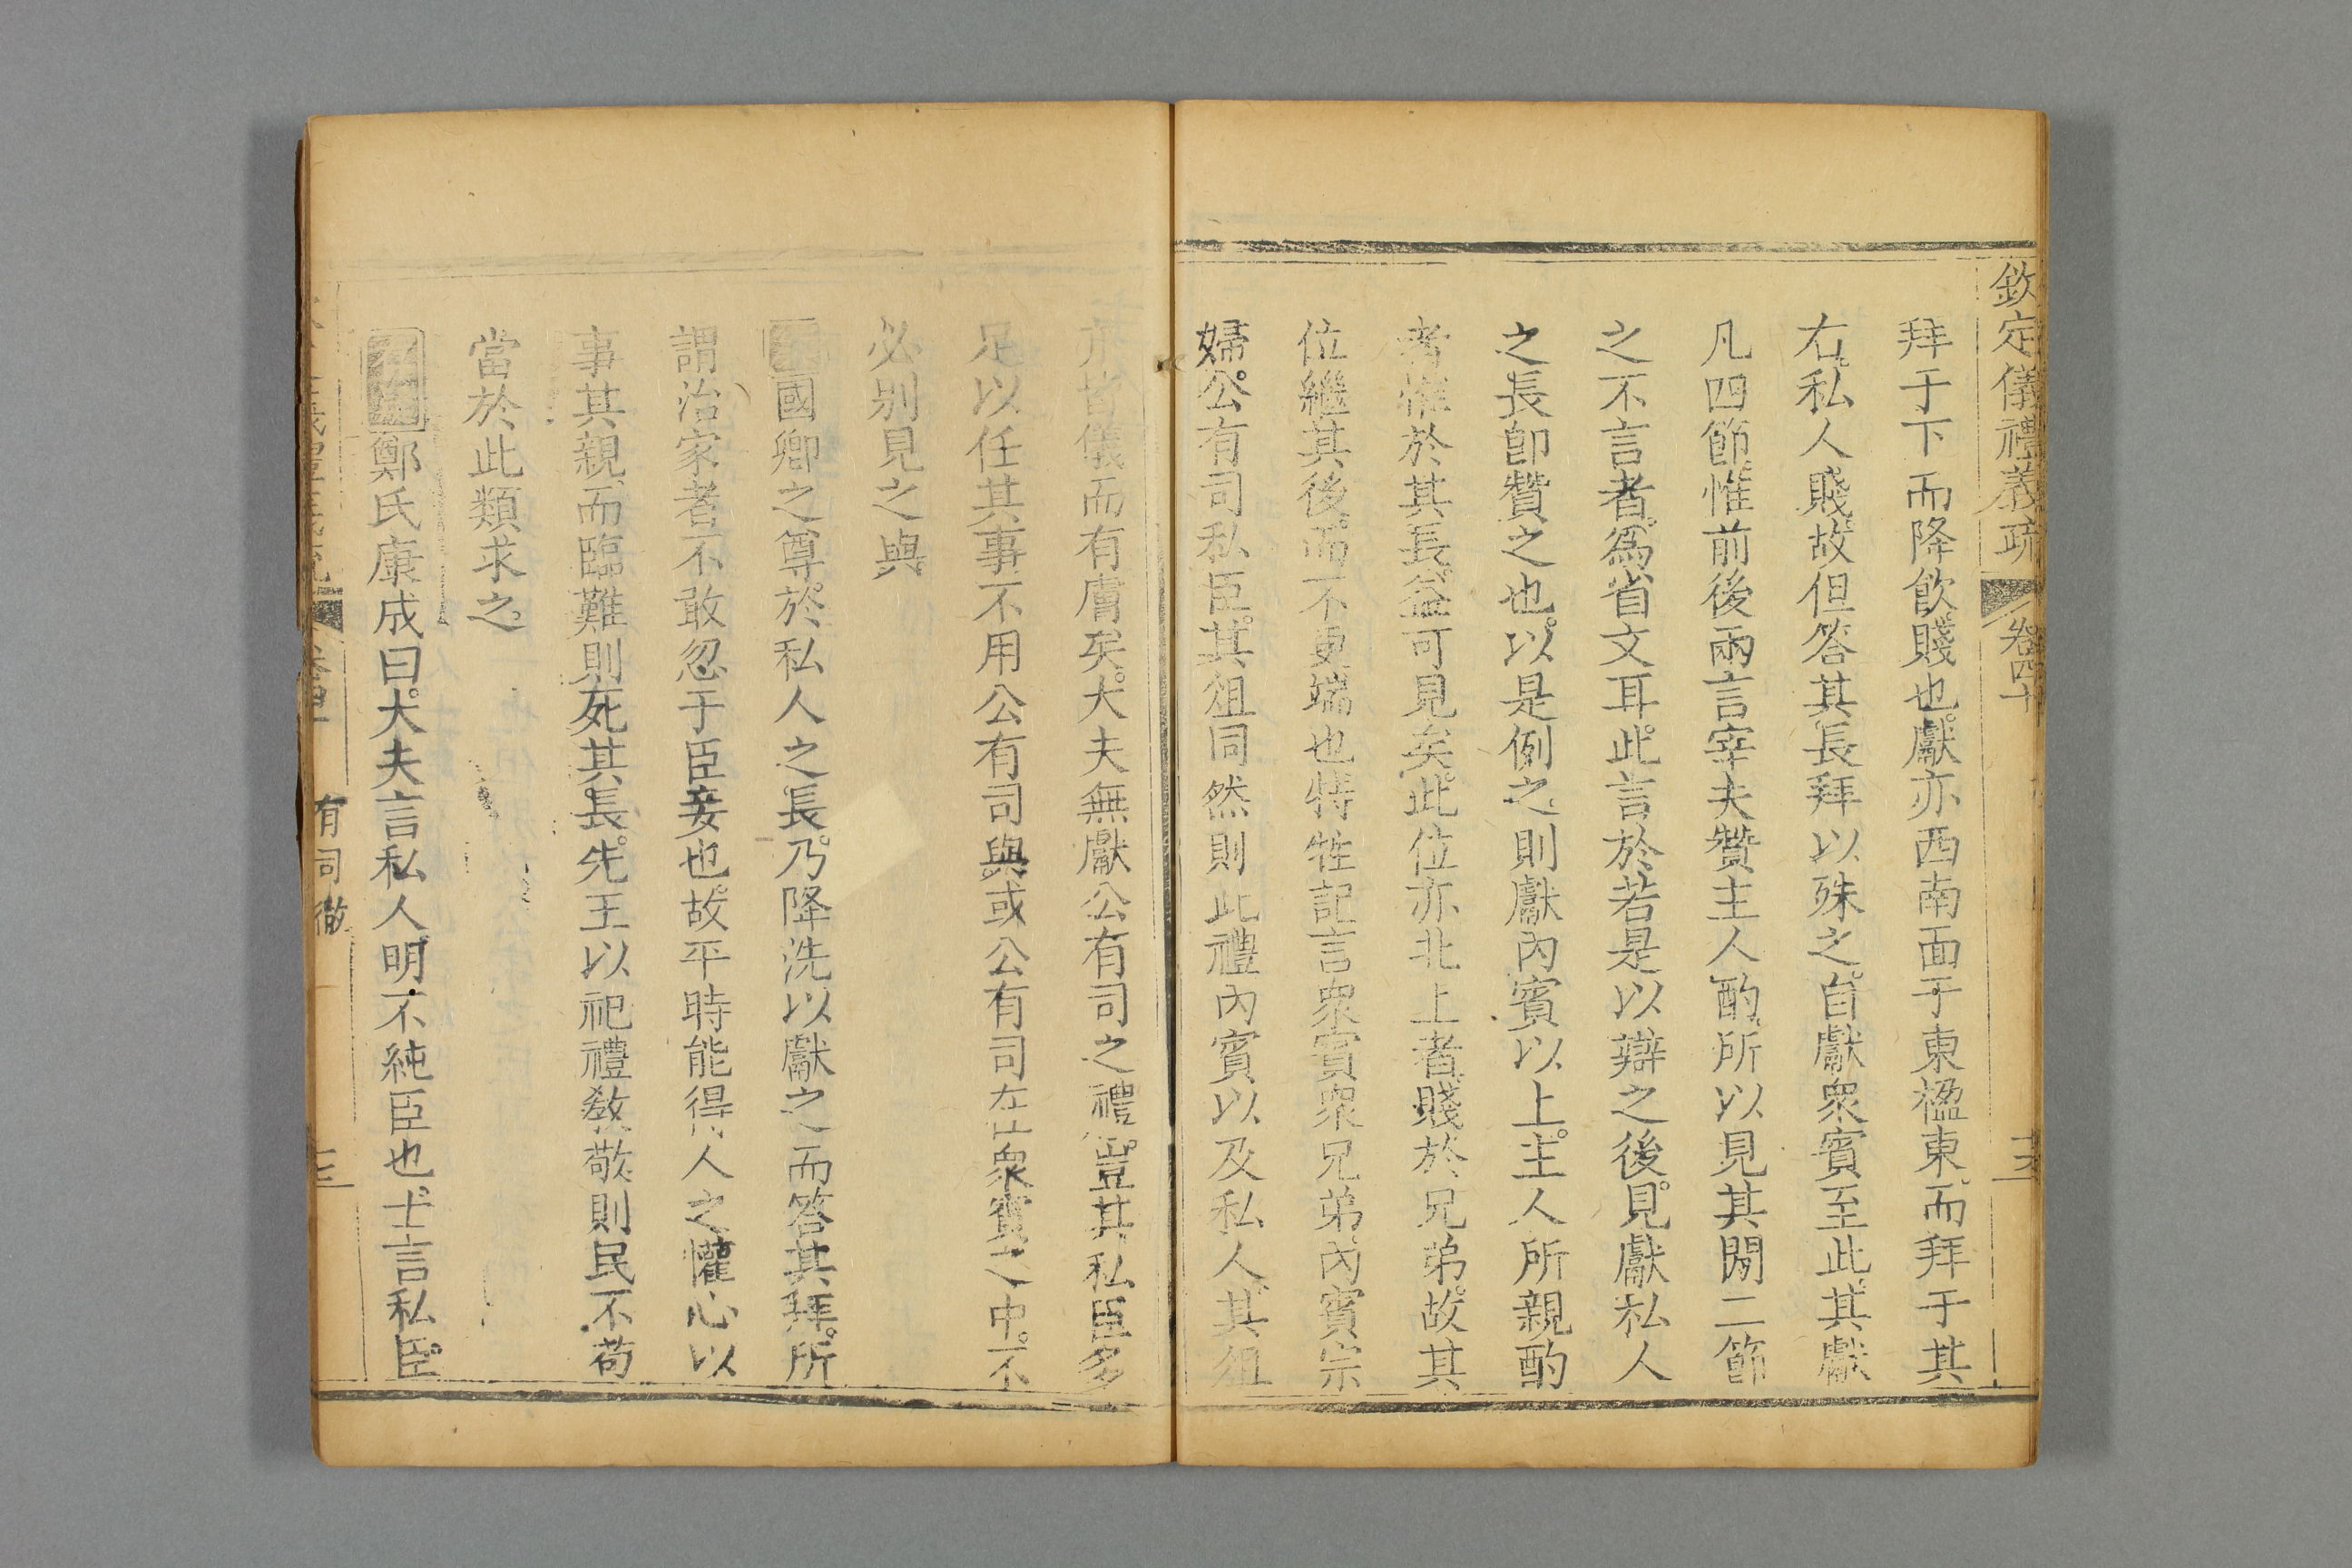 欽定儀禮義疏 卷四十
拜于下而降飲賤也獻亦西南面于東楹東而拜于其
右私人賤故但答其長拜以殊之自獻衆賓至此其獻
凡四節惟前後兩言宰夫贊主人酌所以見其閒二節
之不言者爲省文耳此言於若是以辯之後見獻私人
之長卽贊之也以是例之則獻內賓以上主人所親酌
者惟於其長益可見矣此位亦北上者賤於兄弟故其
位繼其後而不更端也特牲記言衆賓衆兄弟內賓宗
婦公有司私臣其俎同然則此禮內賓以及私人其俎
亦皆儀而有膚矣大夫無獻公有司之禮豈其私臣多
足以任其事不用公有司與或公有司在衆賓之中不
必別見之與
國卿之尊於私人之長乃降洗以獻之而答其拜所
謂治家者不敢忽于臣妾也故平時能得人之懽心以
事其親而臨難則死其長先王以祀禮敎敬則民不苟
當於此類求之
鄭氏康成曰大夫言私人明不純臣也士言私臣
有司徹